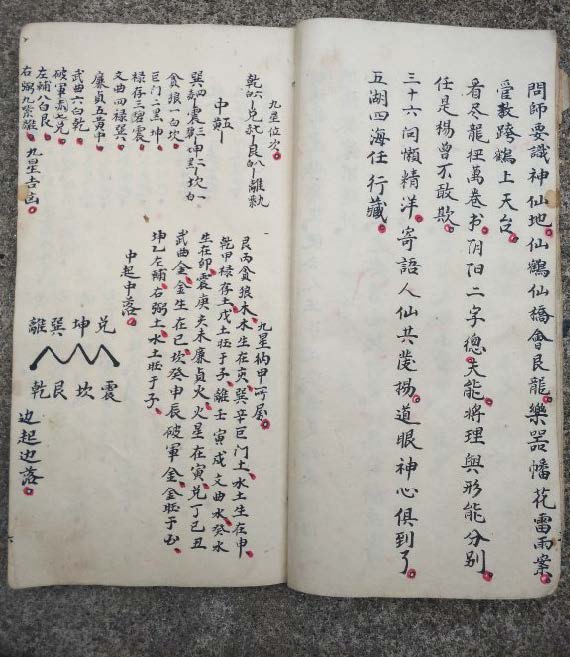 問師要識神仙地仙鶴仙橋會艮龍樂器幡花雷雨案
受教跨鶴上天台
看尽龍徑萬卷书阴阳二字總
能将理與形能分别
任是楊曽不敢欺
三十六问懶精洋寄語人仙共
楊道眼神心俱到了
五湖四海任行藏
九星位次
乾六 兑七 艮八 離九
中五黄
巽四 震三 坤二 坎一
貪狼一白坎
巨門二黑坤
禄存三碧震
文曲四禄巽
廉貞五黄中
武曲六白乾
破軍七赤兑
左輔八白艮
右弼九紫離
九星吉凶
九星納甲所属
艮丙貪狼木木生在亥巽辛巨门土水土生在申
乾甲禄存土戊土旺于子離壬寅戌文曲水癸水
生在卯震庚亥未廉貞火火星在寅兑丁巳丑
武曲金金生在巳坎癸申辰破軍金金旺于酉
坤乙左輔右弼土水土旺于子
中起中落
離巽坤兑
乾艮坎震
边起边落